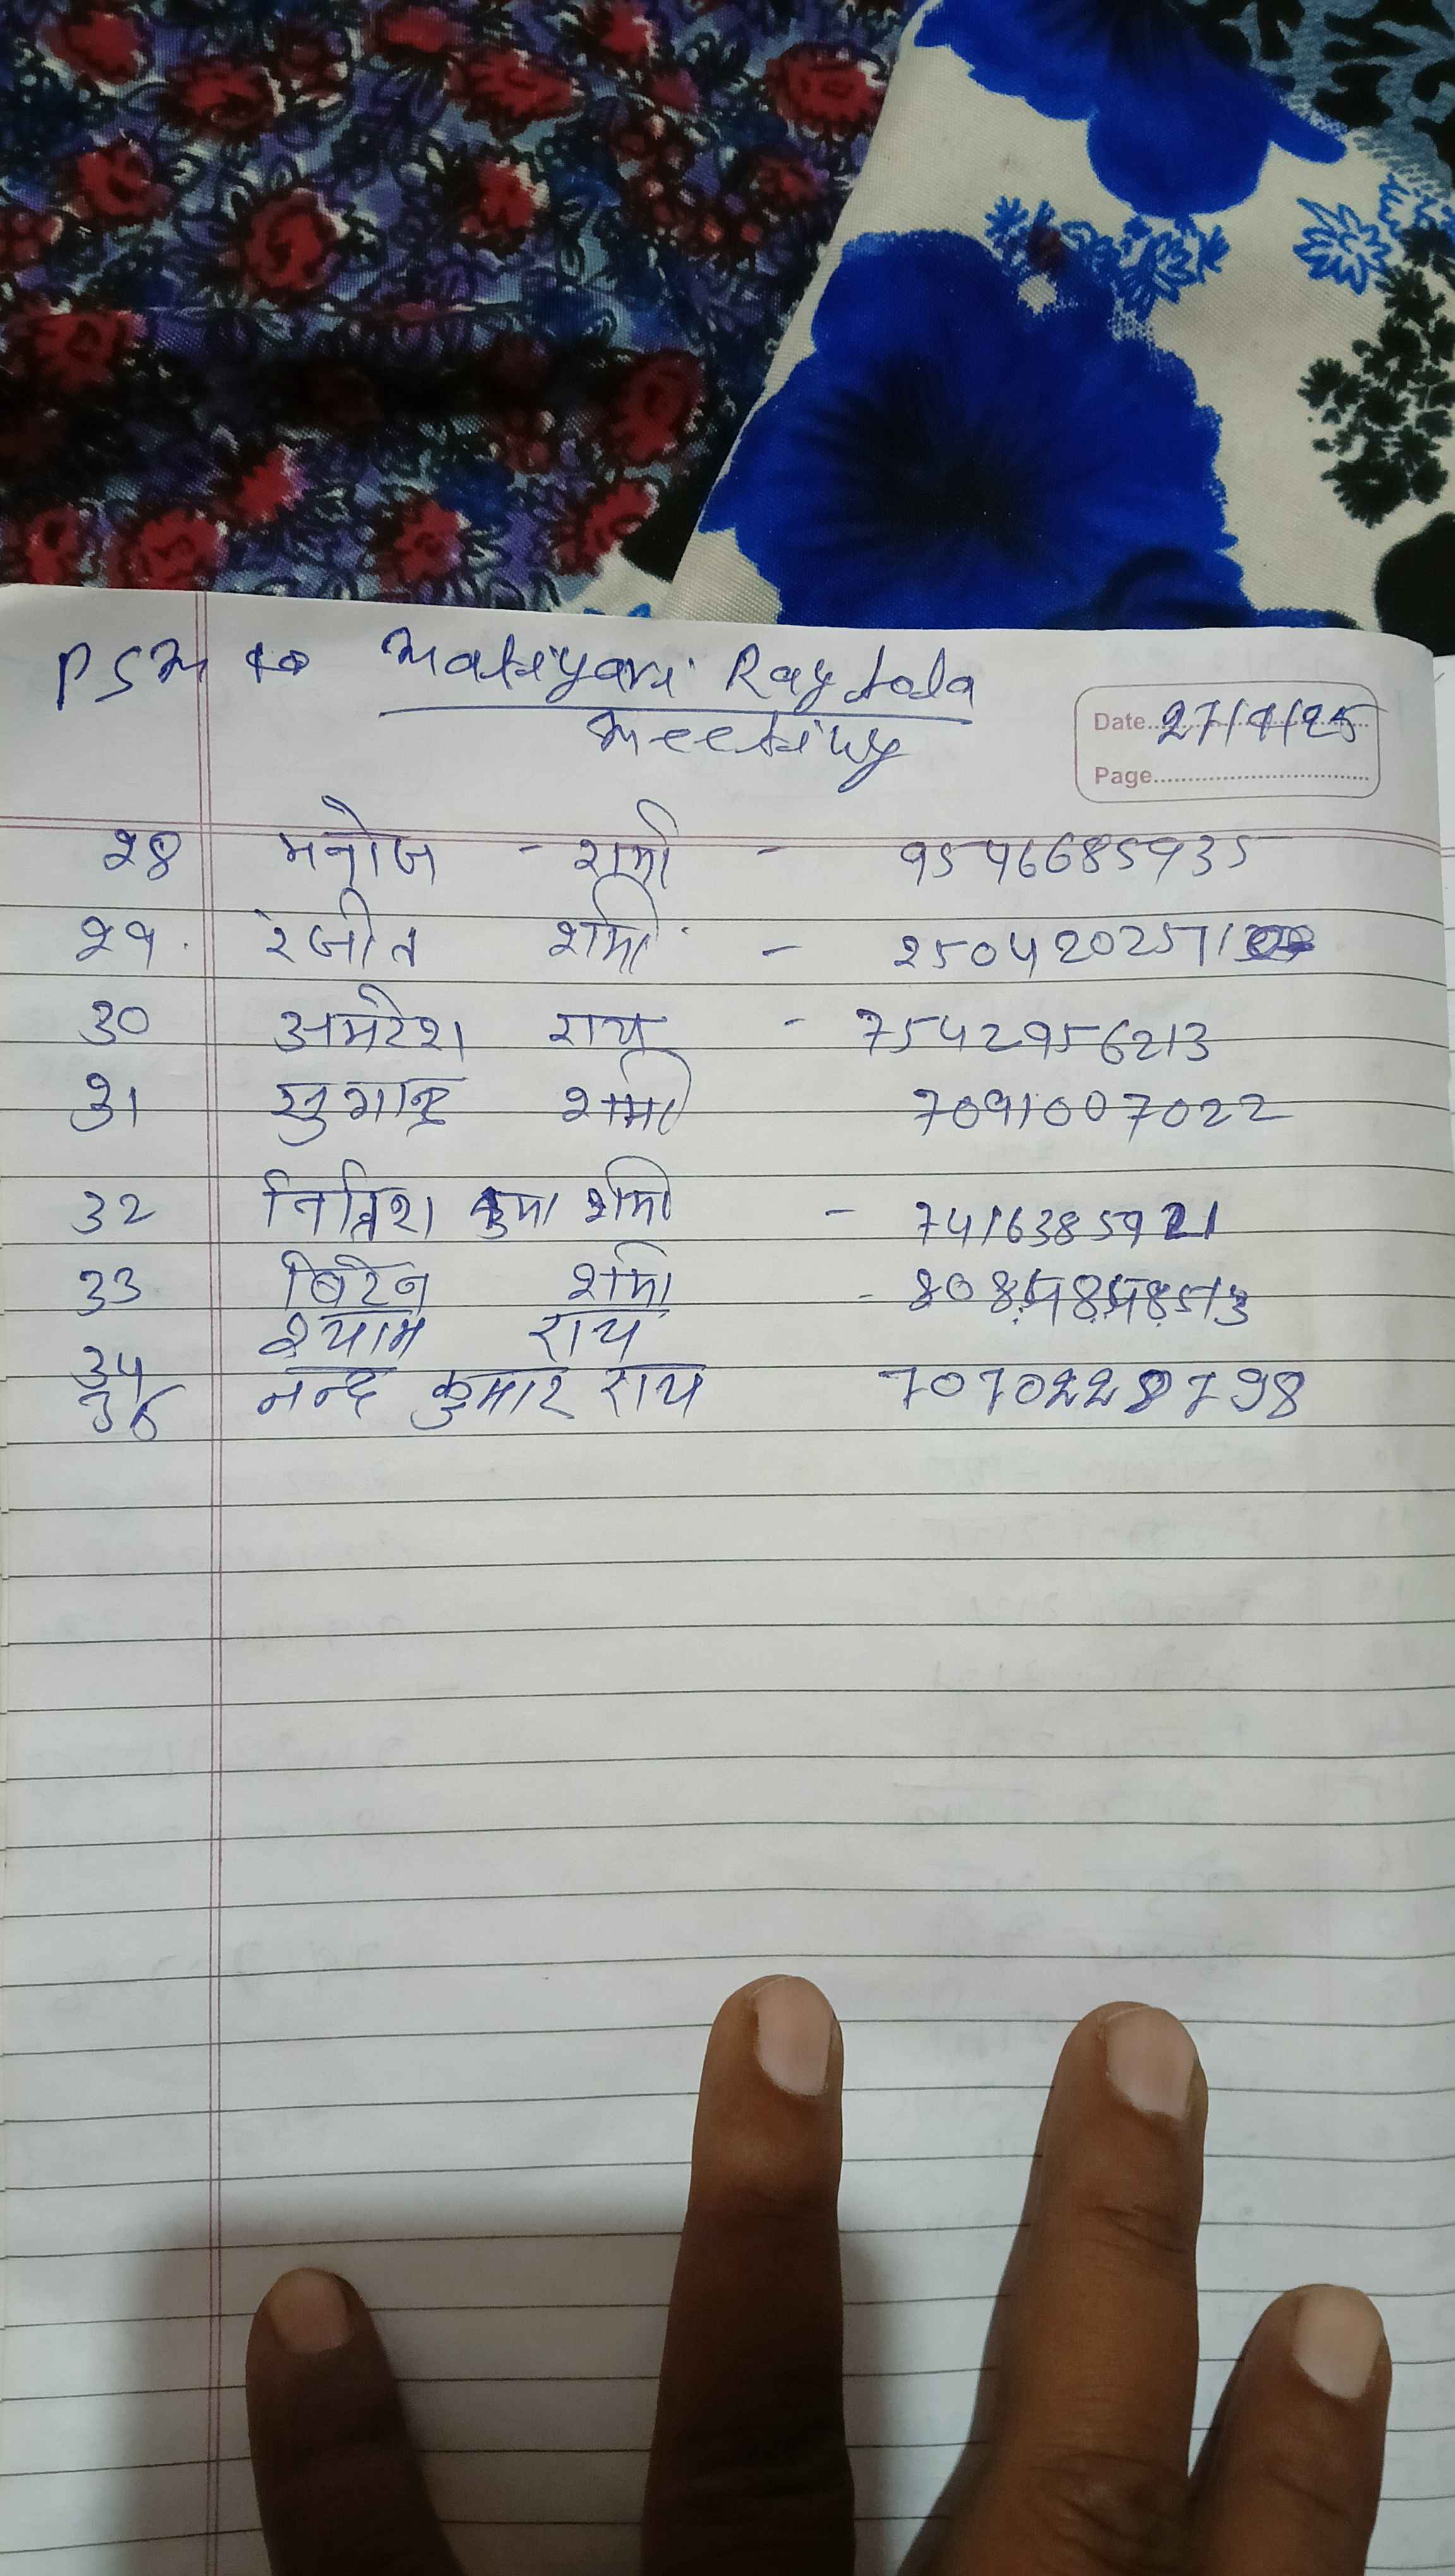 PSM to Matiyari Ray tola
Meeting
Date 27/9/25
Page
28 मनोज - शर्मा - 9546685935
29. रंजीत शर्मा - 2504202571
30 अमरेश राय - 7542956213
31 शर्मा 7091007022
32 कुमा शर्मा - 7416385921
33 बिरेन शर्मा -
34 श्याम राय
36 नन्द कुमार राय 7070228798